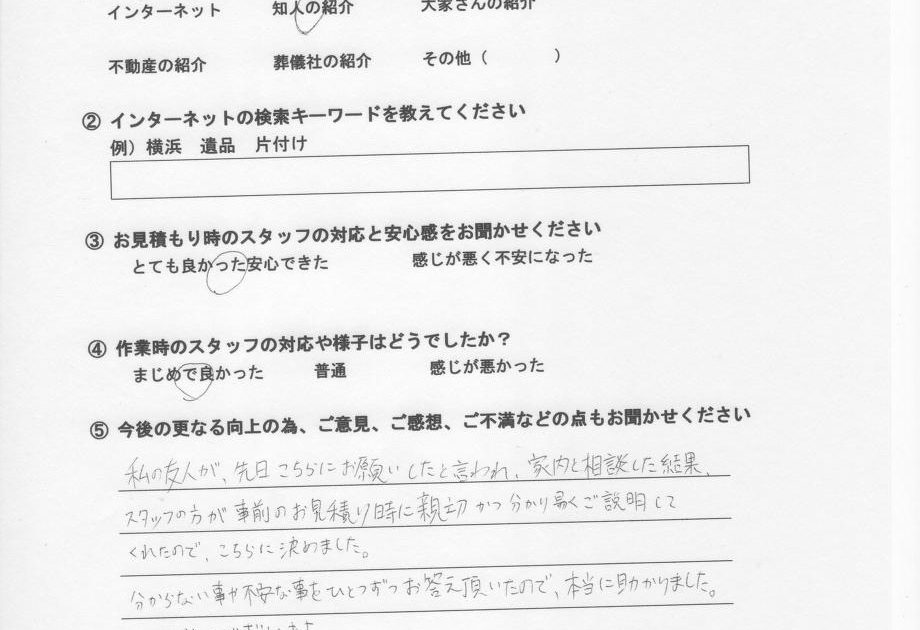 インターネット 知人の紹介 大家さんの紹介
不動産の紹介 葬儀社の紹介 その他（ ）
② インターネットの検索キーワードを教えてください
例）横浜 遺品 片付け
③ お見積もり時のスタッフの対応と安心感をお聞かせください
とても良かった安心できた 感じが悪く不安になった
④ 作業時のスタッフの対応や様子はどうでしたか？
まじめで良かった 普通 感じが悪かった
⑤ 今後の更なる向上の為、ご意見、ご感想、ご不満などの点もお聞かせください
私の友人が、先日こちらにお願いしたと言われ、家内と相談した結果、
スタッフの方が事前のお見積り時に親切かつ分かり易くご説明して
くれたので、こちらに決めました。
分からない事や不安な事をひとつずつお答え頂いたので、本当に助かりました。